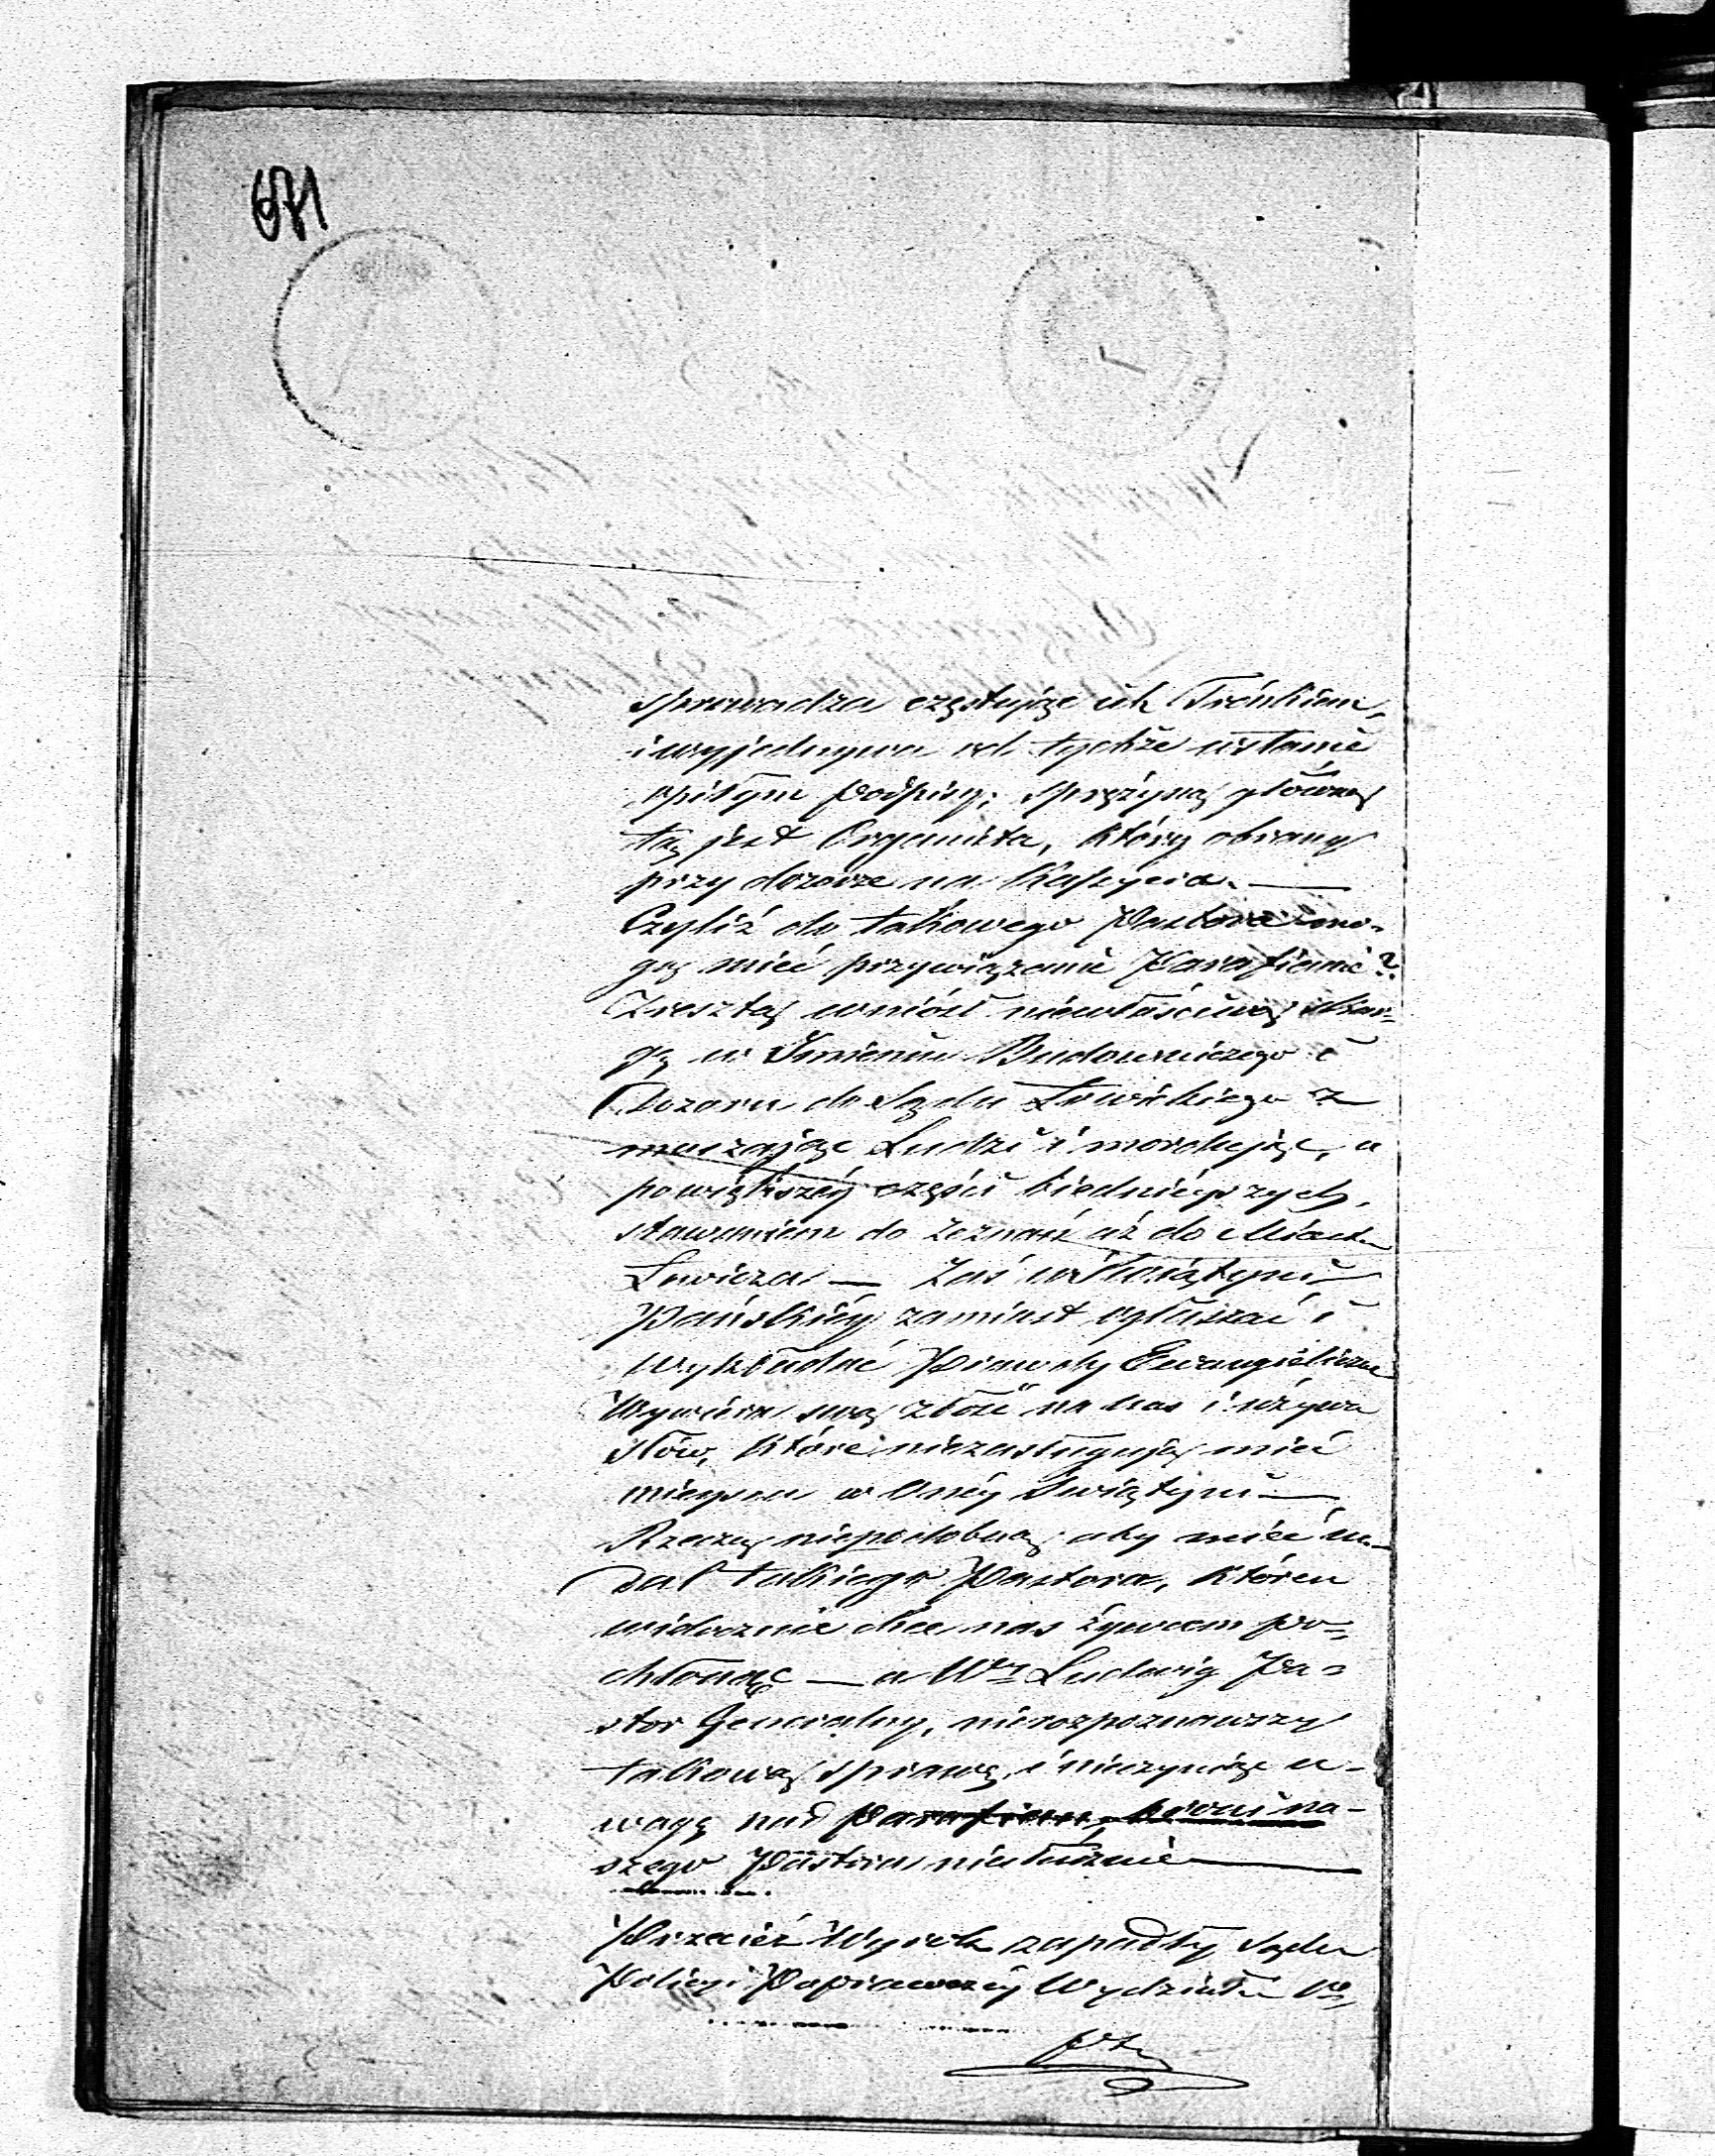 671
sprowadza częstując ich Trónkiem,
i wyjednywa od tychże w stanie
opiłym podpisy; sprężyną główną
tą jest Organista, który obrany
przy dozorze na Kassyera. —
Czyliż do takowego Pastora mo-
gą mieć przywiązanie Parafianie?
Zresztą wniósł niewłaściwą skar-
gę w Imieniu Budowniczego i
Dozoru do Sądu Łowickiego
muszając Ludzi i mordując, a
powiększéj części biedniejszych,
stawaniem do zeznań aż do Miasta
Łowicza — Zaś w Świątyni
Pańskiéj zamiast ogłaszać i
wykładać Prawdy Ewangieliczne
Wywiera swą złość na nas i używa
słów, które niezasługują mieć
mieysca w Onéj Świątyni —
Rzeczą niepodobną aby mieć na-
dal takiego Pastora, któren
widocznie chce nas żywcem po-
chłonąć — a Wny Ludwig Pa-
stor Generalny, nierozpoznawszy
takową sprawę, i nieczyniąc u-
wagę nad na-
szego Pastora niesłusznie —
Przecież Wyrok zapadły Sądu
Policyi Poprawczéj Wydziału